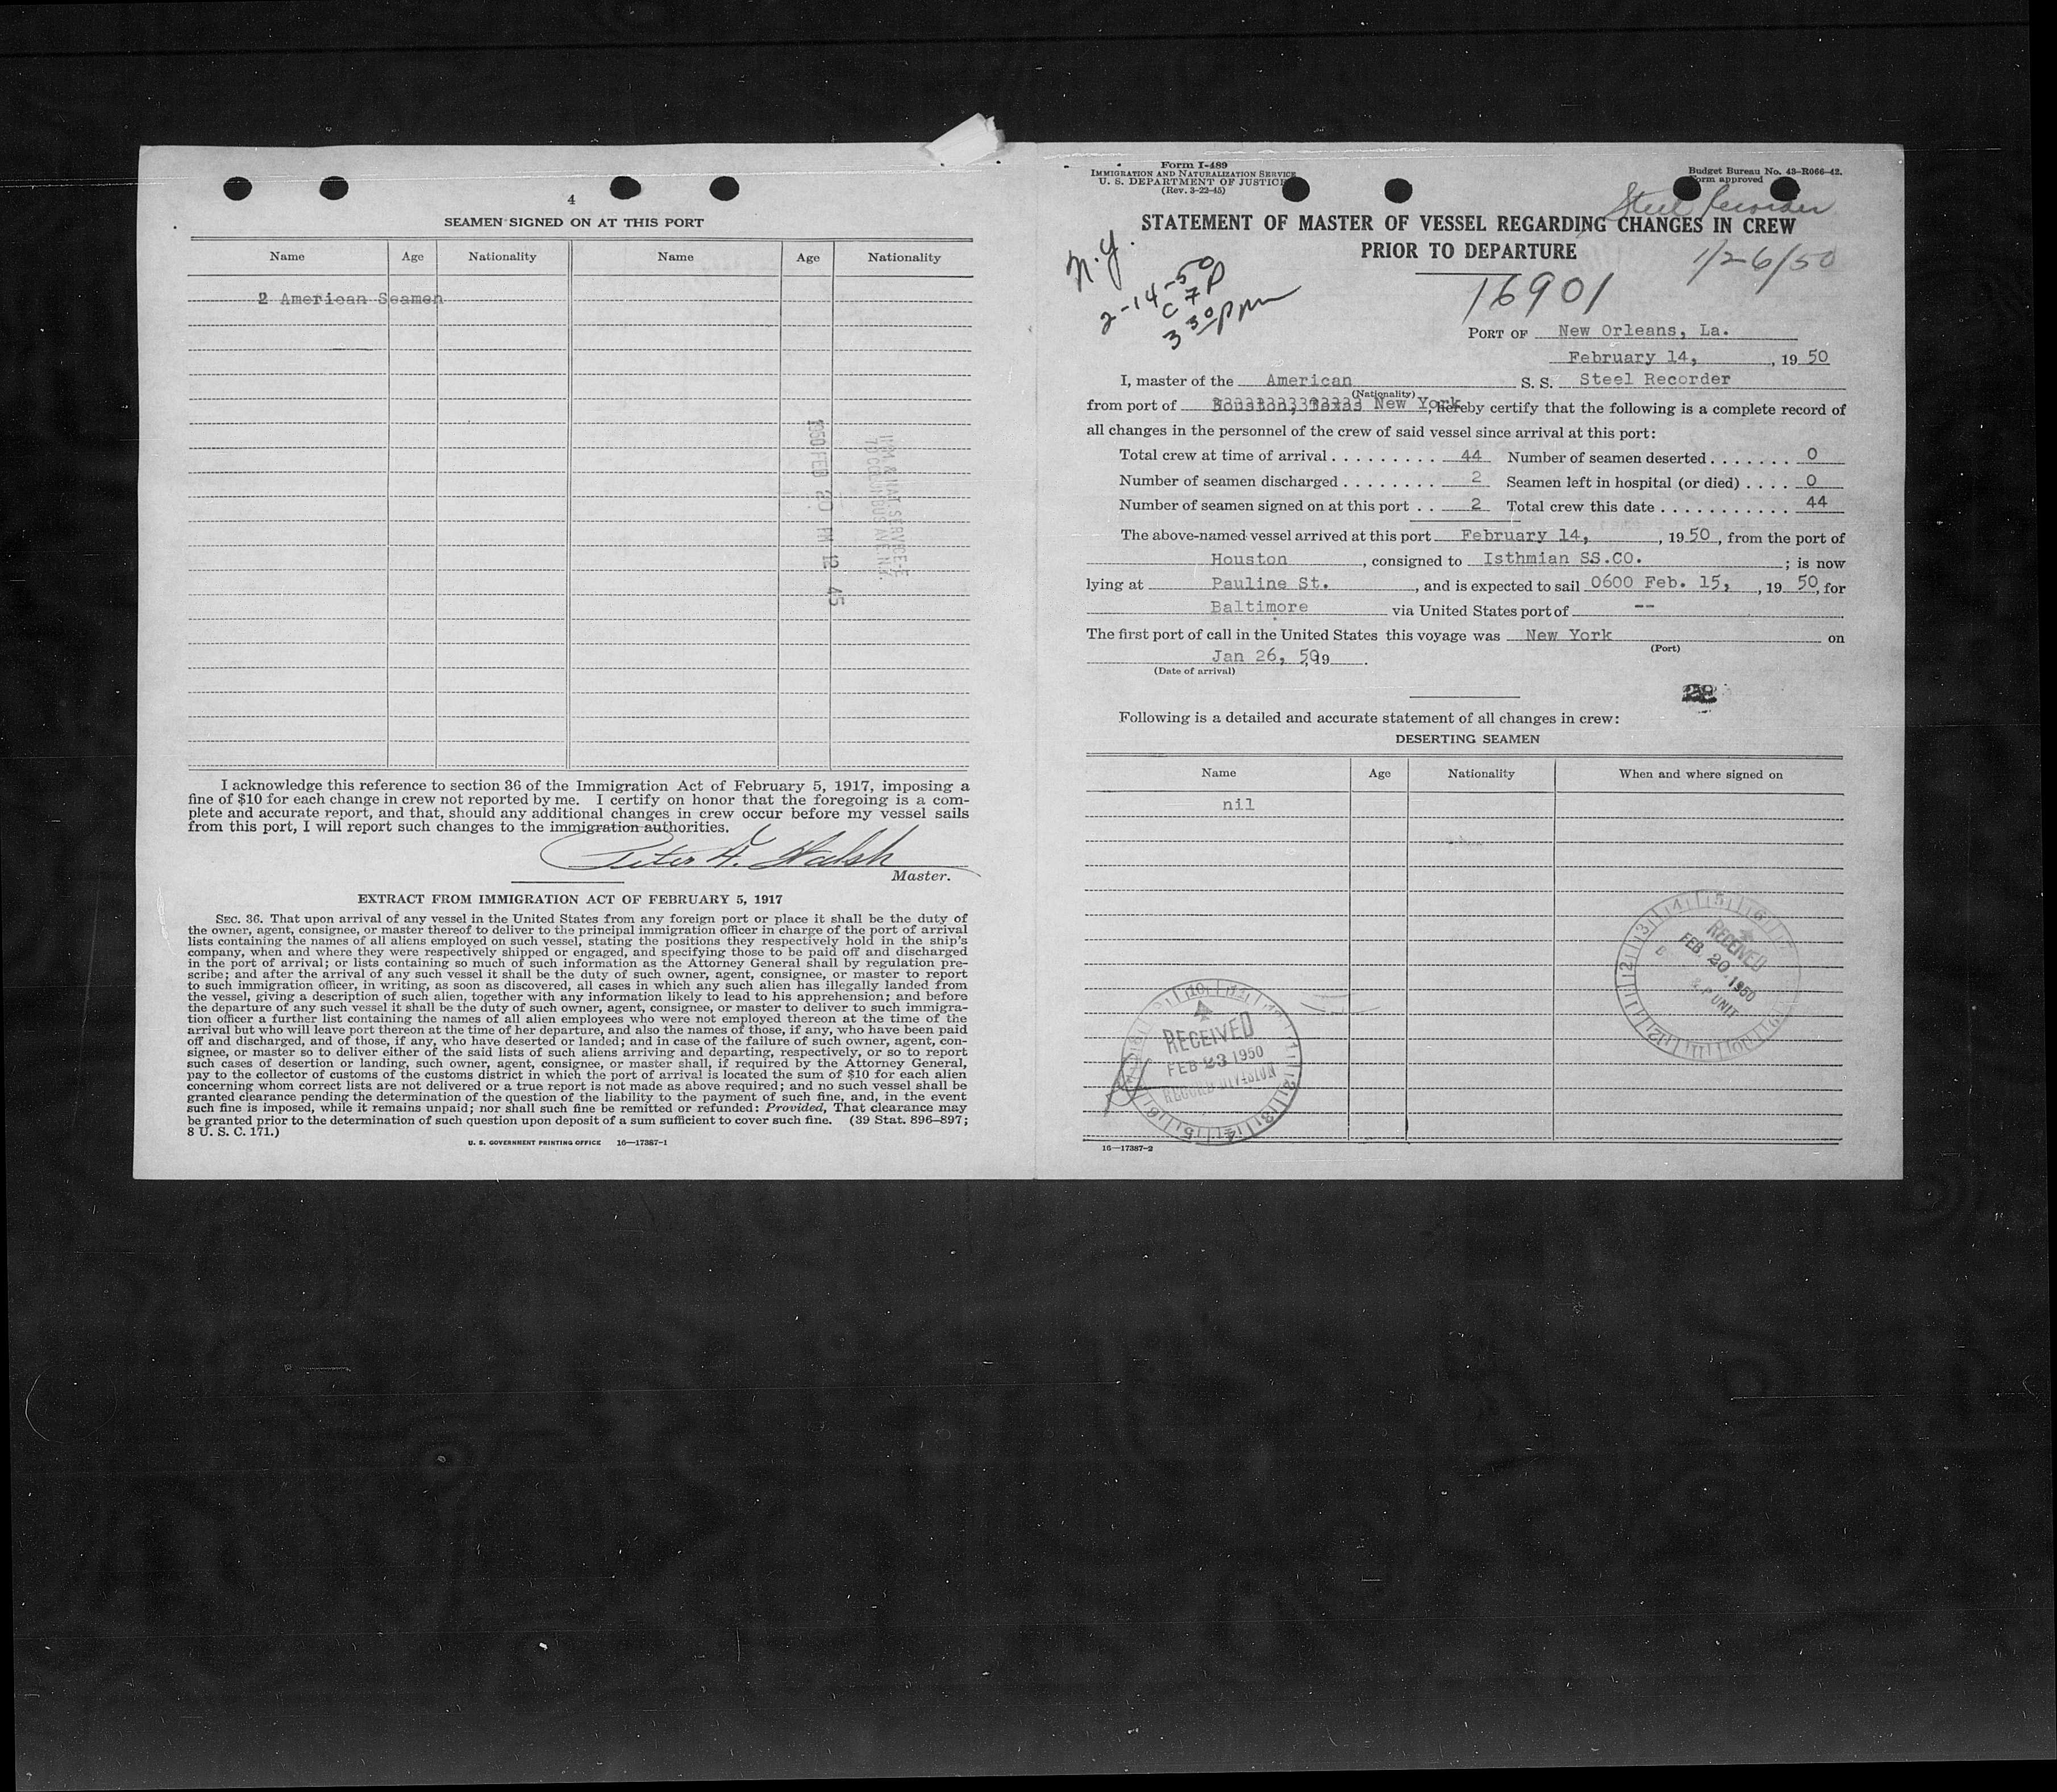 4
SEAMEN SIGNED ON AT THIS PORT
Name Age Nationality Name Age Nationality
2 American Seamen
1950 FEB 20 PM 12 45
I acknowledge this reference to section 36 of the Immigration Act of February 5, 1917, imposing a
fine of $10 for each change in crew not reported by me. I certify on honor that the foregoing is a com-
plete and accurate report, and that, should any additional changes in crew occur before my vessel sails
from this port, I will report such changes to the immigration authorities.
Peter H. Walsh
Master.
EXTRACT FROM IMMIGRATION ACT OF FEBRUARY 5, 1917
SEC. 36. That upon arrival of any vessel in the United States from any foreign port or place it shall be the duty of
the owner, agent, consignee, or master thereof to deliver to the principal immigration officer in charge of the port of arrival
lists containing the names of all aliens employed on such vessel, stating the positions they respectively hold in the ship's
company, when and where they were respectively shipped or engaged, and specifying those to be paid off and discharged
in the port of arrival; or lists containing so much of such information as the Attorney General shall by regulation pre-
scribe; and after the arrival of any such vessel it shall be the duty of such owner, agent, consignee, or master to report
to such immigration officer, in writing, as soon as discovered, all cases in which any such alien has illegally landed from
the vessel, giving a description of such alien, together with any information likely to lead to his apprehension; and before
the departure of any such vessel it shall be the duty of such owner, agent, consignee, or master to deliver to such immigra-
tion officer a further list containing the names of all alien employees who were not employed thereon at the time of the
arrival but who will leave port thereon at the time of her departure, and also the names of those, if any, who have been paid
off and discharged, and of those, if any, who have deserted or landed; and in case of the failure of such owner, agent, con-
signee, or master so to deliver either of the said lists of such aliens arriving and departing, respectively, or so to report
such cases of desertion or landing, such owner, agent, consignee, or master shall, if required by the Attorney General,
pay to the collector of customs of the customs district in which the port of arrival is located the sum of $10 for each alien
concerning whom correct lists are not delivered or a true report is not made as above required; and no such vessel shall be
granted clearance pending the determination of the question of the liability to the payment of such fine, and, in the event
such fine is imposed, while it remains unpaid; nor shall such fine be remitted or refunded: Provided, That clearance may
be granted prior to the determination of such question upon deposit of a sum sufficient to cover such fine. (39 Stat. 896–897;
8 U. S. C. 171.)
U. S. GOVERNMENT PRINTING OFFICE 16—17387-1
Form I-489
IMMIGRATION AND NATURALIZATION SERVICE
U. S. DEPARTMENT OF JUSTICE
(Rev. 3-22-45)
Budget Bureau No. 43-R066-42.
Form approved
Steel Recorder
STATEMENT OF MASTER OF VESSEL REGARDING CHANGES IN CREW
PRIOR TO DEPARTURE
1/26/50
N.Y.
2-14-50
C 7 P
3 30 pm
16901
PORT OF New Orleans, La.
February 14, , 19 50
I, master of the American S. S. Steel Recorder
(Nationality)
from port of Houston, Texas New York, hereby certify that the following is a complete record of
all changes in the personnel of the crew of said vessel since arrival at this port:
Total crew at time of arrival . . . . . . . . . . 44 Number of seamen deserted . . . . . . . 0
Number of seamen discharged . . . . . . . . 2 Seamen left in hospital (or died) . . . . 0
Number of seamen signed on at this port . . 2 Total crew this date . . . . . . . . . . . 44
The above-named vessel arrived at this port February 14, , 19 50, from the port of
Houston , consigned to Isthmian SS.CO. ; is now
lying at Pauline St. , and is expected to sail 0600 Feb. 15, , 19 50, for
Baltimore via United States port of --
The first port of call in the United States this voyage was New York on
(Port)
Jan 26, 50 19 .
(Date of arrival)
Following is a detailed and accurate statement of all changes in crew:
DESERTING SEAMEN
Name Age Nationality When and where signed on
nil
RECEIVED
FEB. 20. 1950
UNIT
RECEIVED
FEB 23 1950
RECORD DIVISION
16—17387-2